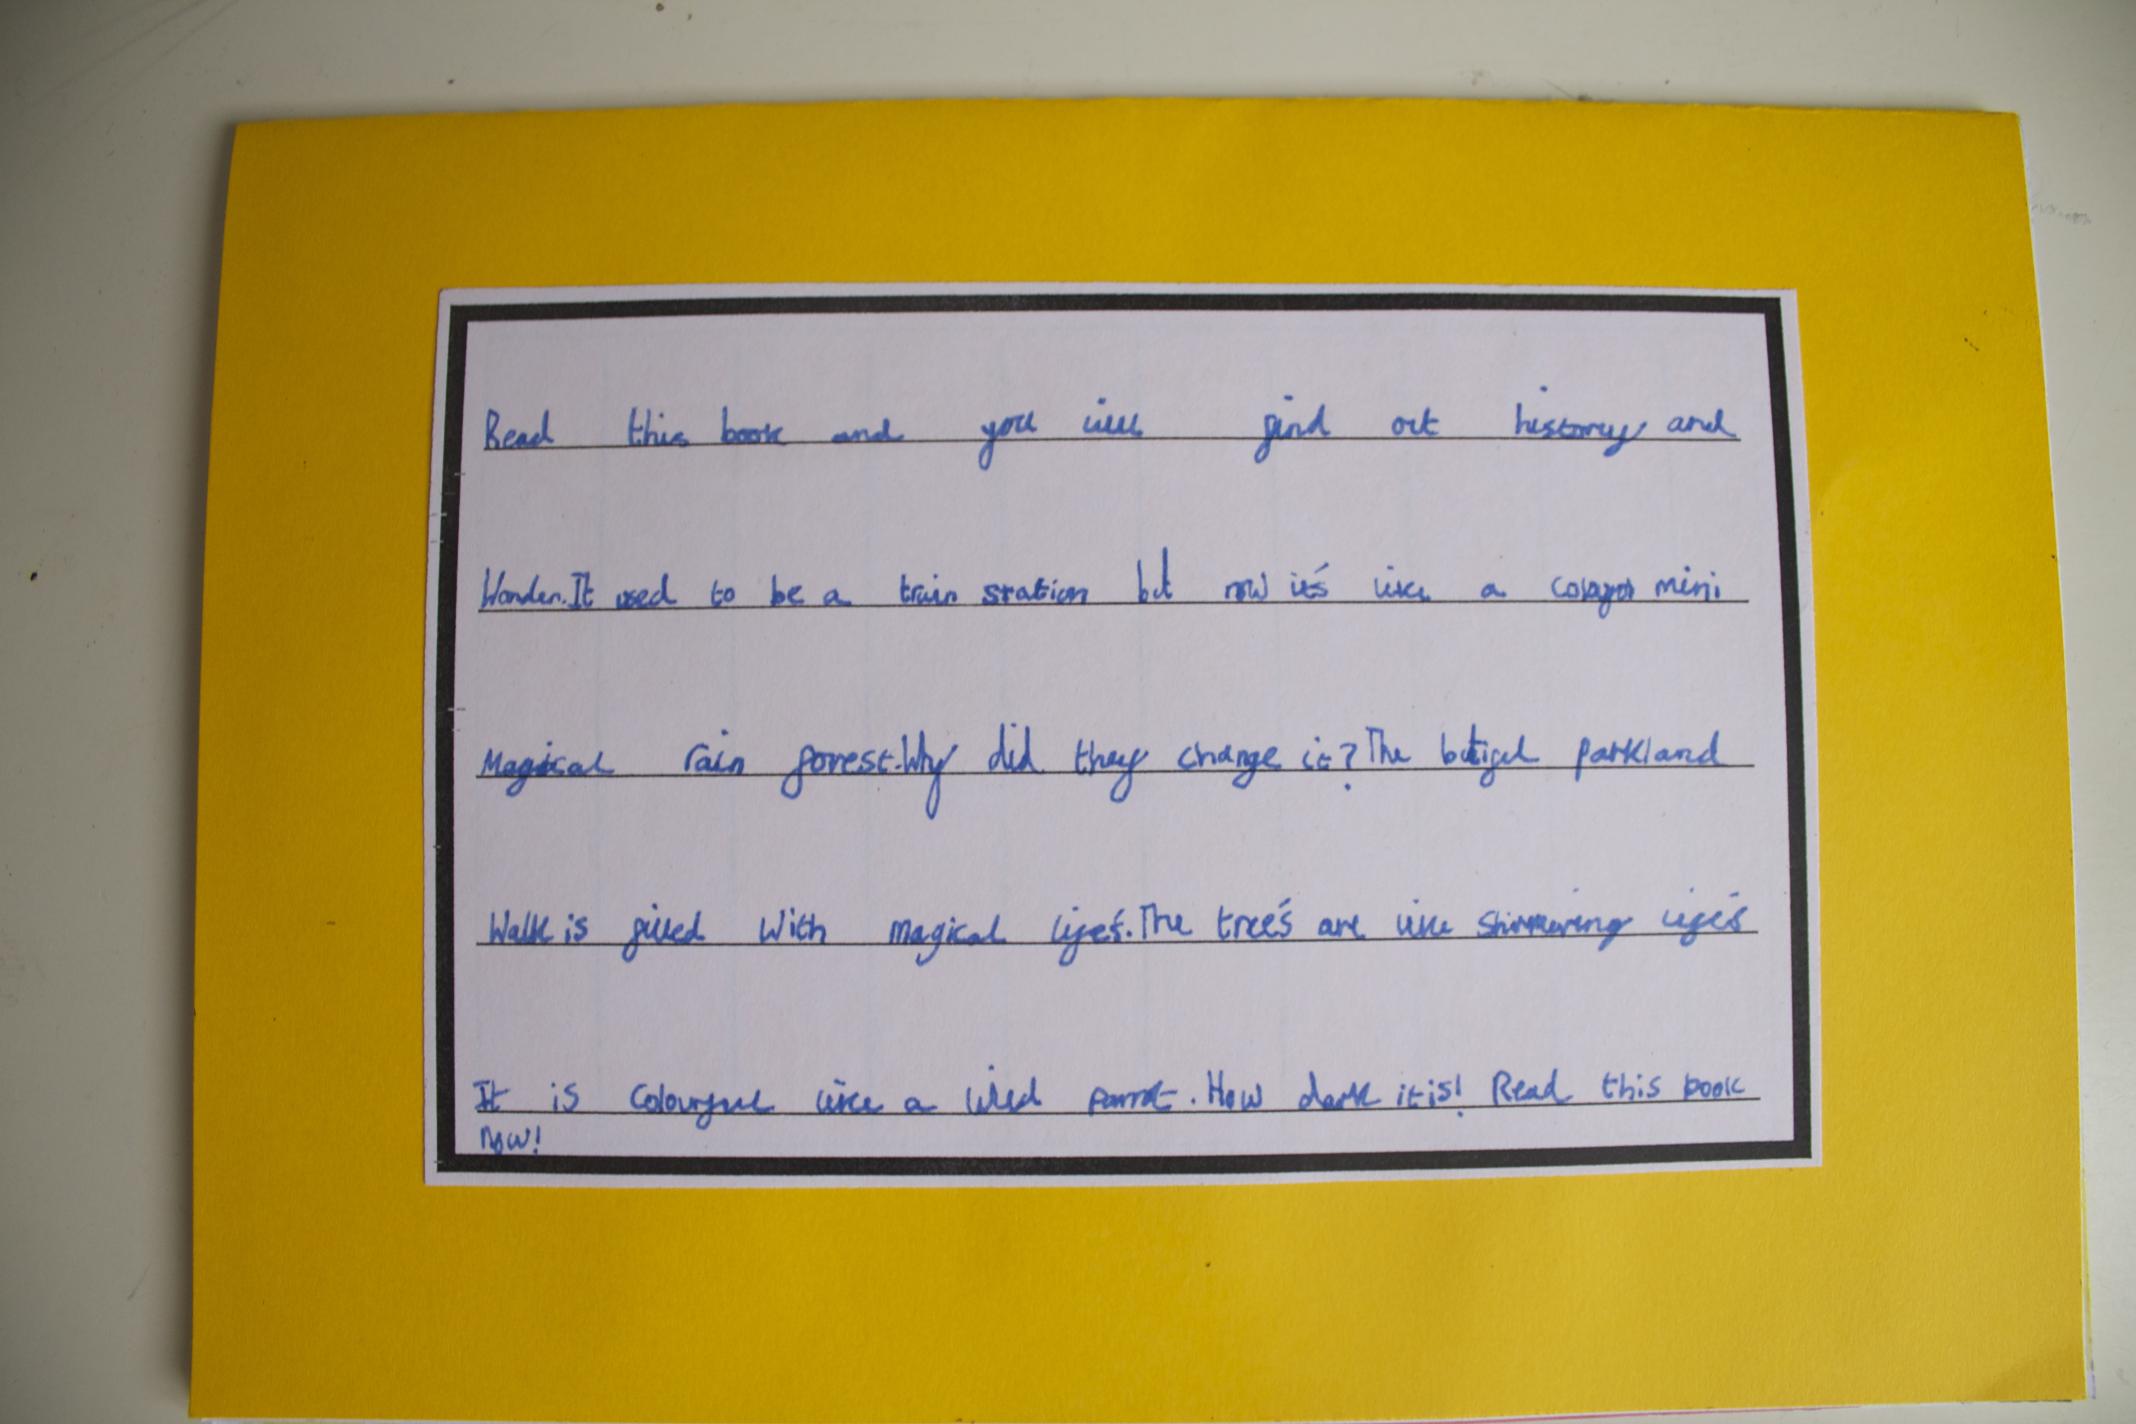 Read this book and you will find out history and
Wonder. It used to be a train station but now it's like a mini
Magical rain forest. Why did they change it? The butiful parkland
Walk is filled with magical life's. The tree's are like shimmering life's
It is colourful like a wild parrot. How dark it is! Read this book
now!